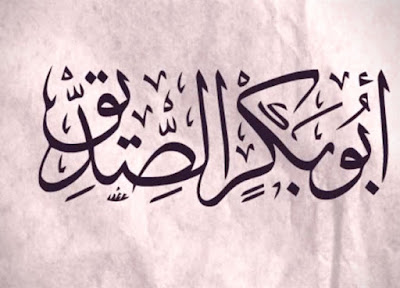 أبُو بَكرٍ الصِّدِّيق